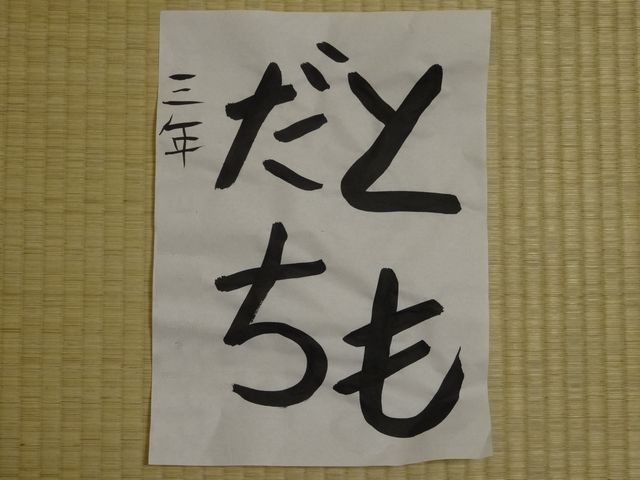 とも
だち
三年